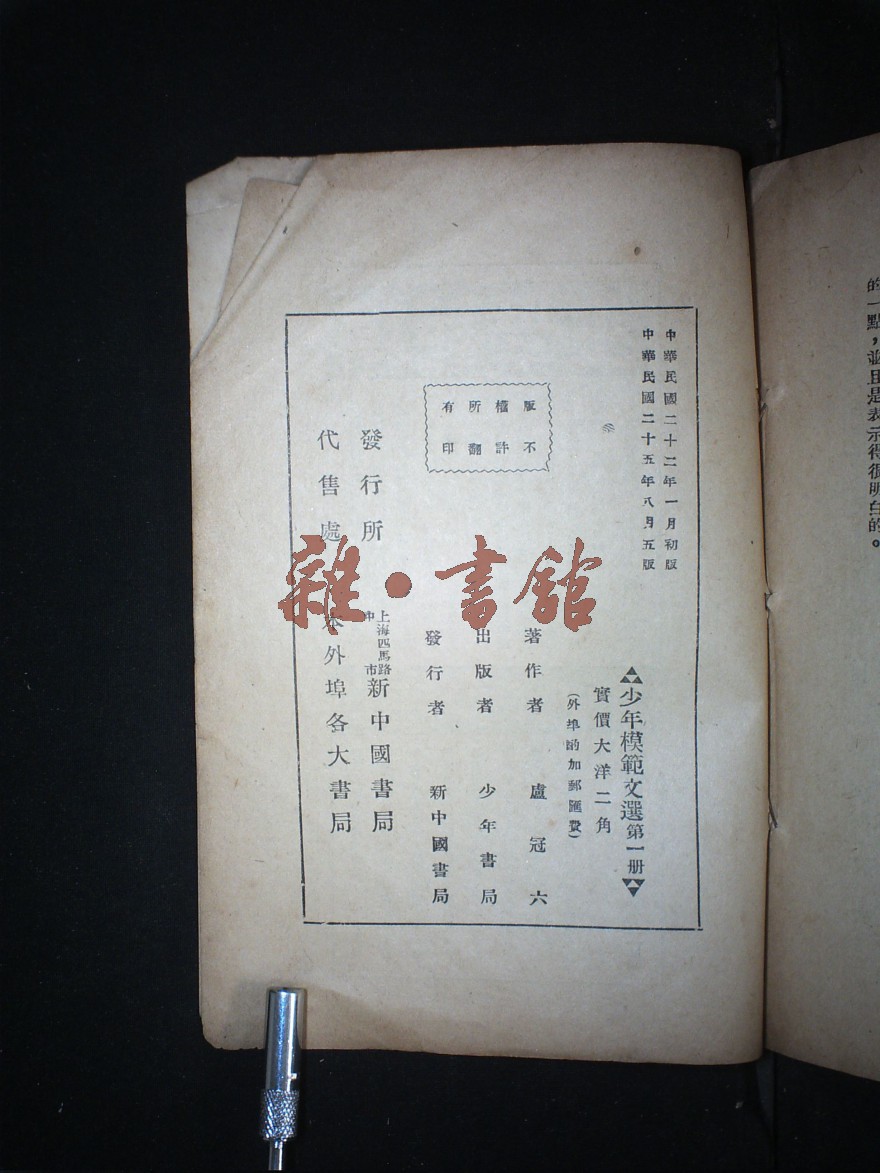 中華民國二十二年一月初版
中華民國二十五年八月五版
少年模範文選第一册
實價大洋二角
(外埠酌加郵匯費)
版權所有
不許翻印
著作者 盧冠六
出版者 少年書局
發行者 新中國書局
發行所 上海四馬路中市 新中國書局
代售處 本外埠各大書局
雜·書館
的一點，並且是表示得很明白的。